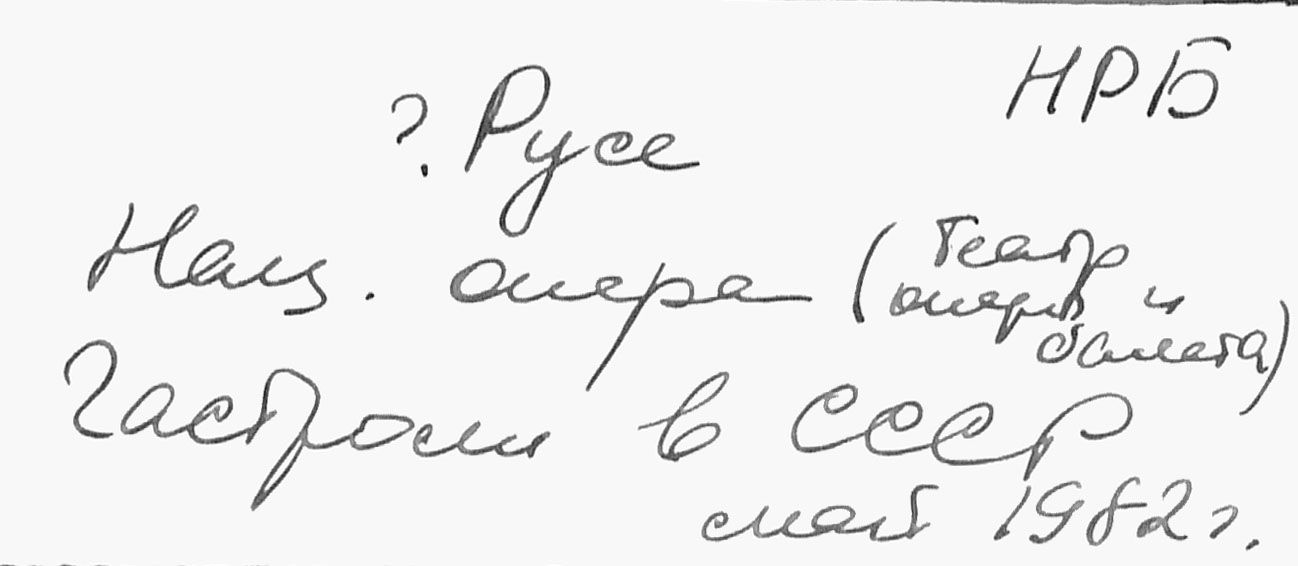 НРБ
?. Русе
Нац. опера (Театр
оперы и
балета)
Гастроли в СССР
май 1982 г.